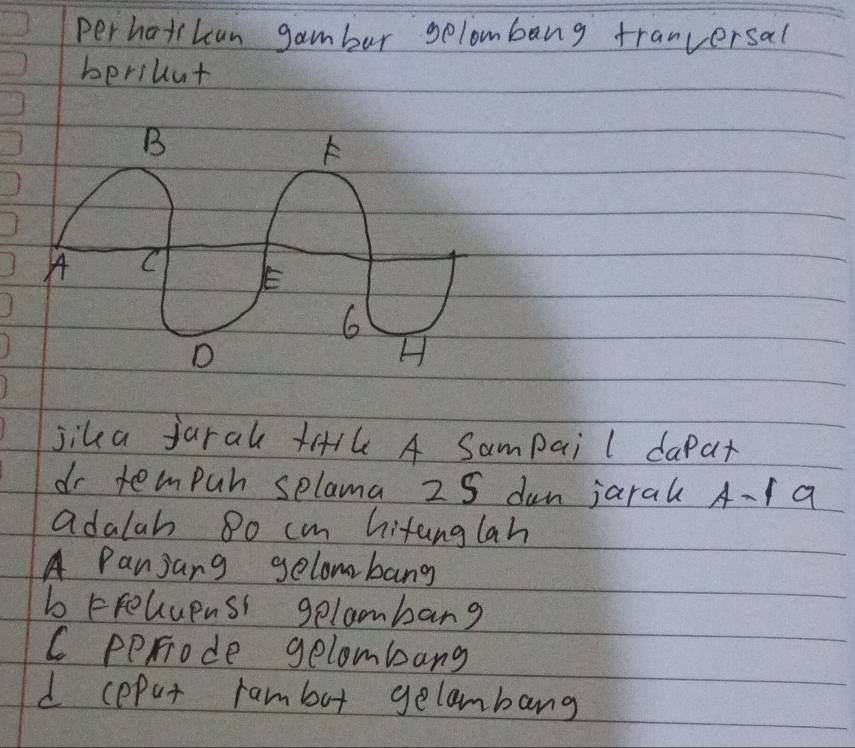 perhatikan gambar gelombang tranversal
berikut
B F
A C E
G
D H
jika jarak titik A Sampai l dapat
di tempuh selama 2S dan jarak A-1 a
adalah 80 cm hitunglah
A Panjang gelombang
b Frekuensi gelombang
C periode gelombang
d cepat rambat gelombang